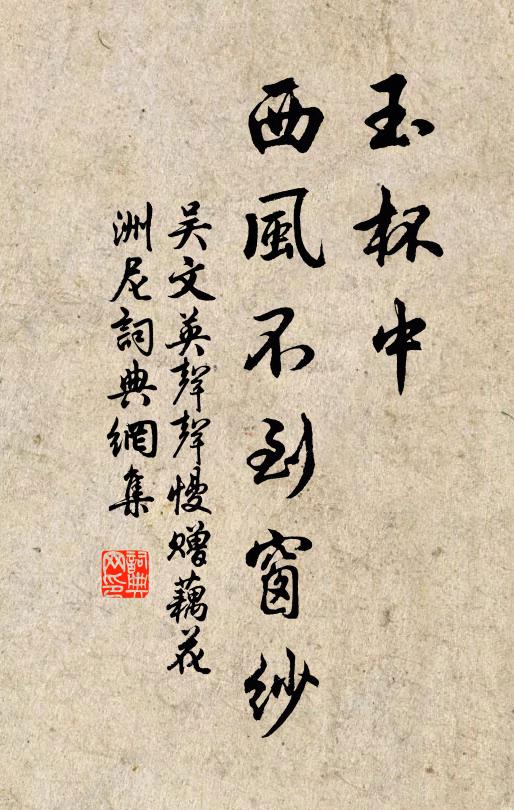 玉杯中
西風不到窗紗
吳文英聲聲慢贈藕花
洲尼詞典網集
詞典网印